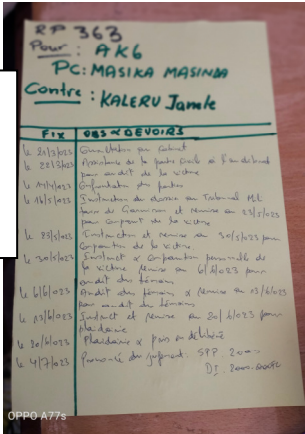 RP 363
Pour : AK6
PC: MASIKA MASINDA
Contre : KALERU Jamele
FIX OBS & DEVOIRS
le 21/3/023 Consultation au cabinet
le 22/3/023 Assistance de la partie civile à l'auditorat
pour audit de la victime
le 14/4/023 Confrontation des parties
le 16/5/023 Instruction du dossier au Tribunal ML
de Garnison et remise au 23/5/023
pour comparut de la victime
le 23/5/023 Instruction et remise au 30/5/023 pour
comparution de la victime
le 30/5/023 Instruct & comparution personnelle de
la victime remise au 6/6/023 pour
audit des témoins
le 6/6/023 Audit des témoins & remise au 13/6/023
pour audit de témoins
le 13/6/023 Instruct et remise au 20/6/023 pour
plaidoirie
le 20/6/023 Plaidoirie & pris en délibéré
le 4/7/023 Prononcé du jugement. SPP 20
DI.
OPPO A77s